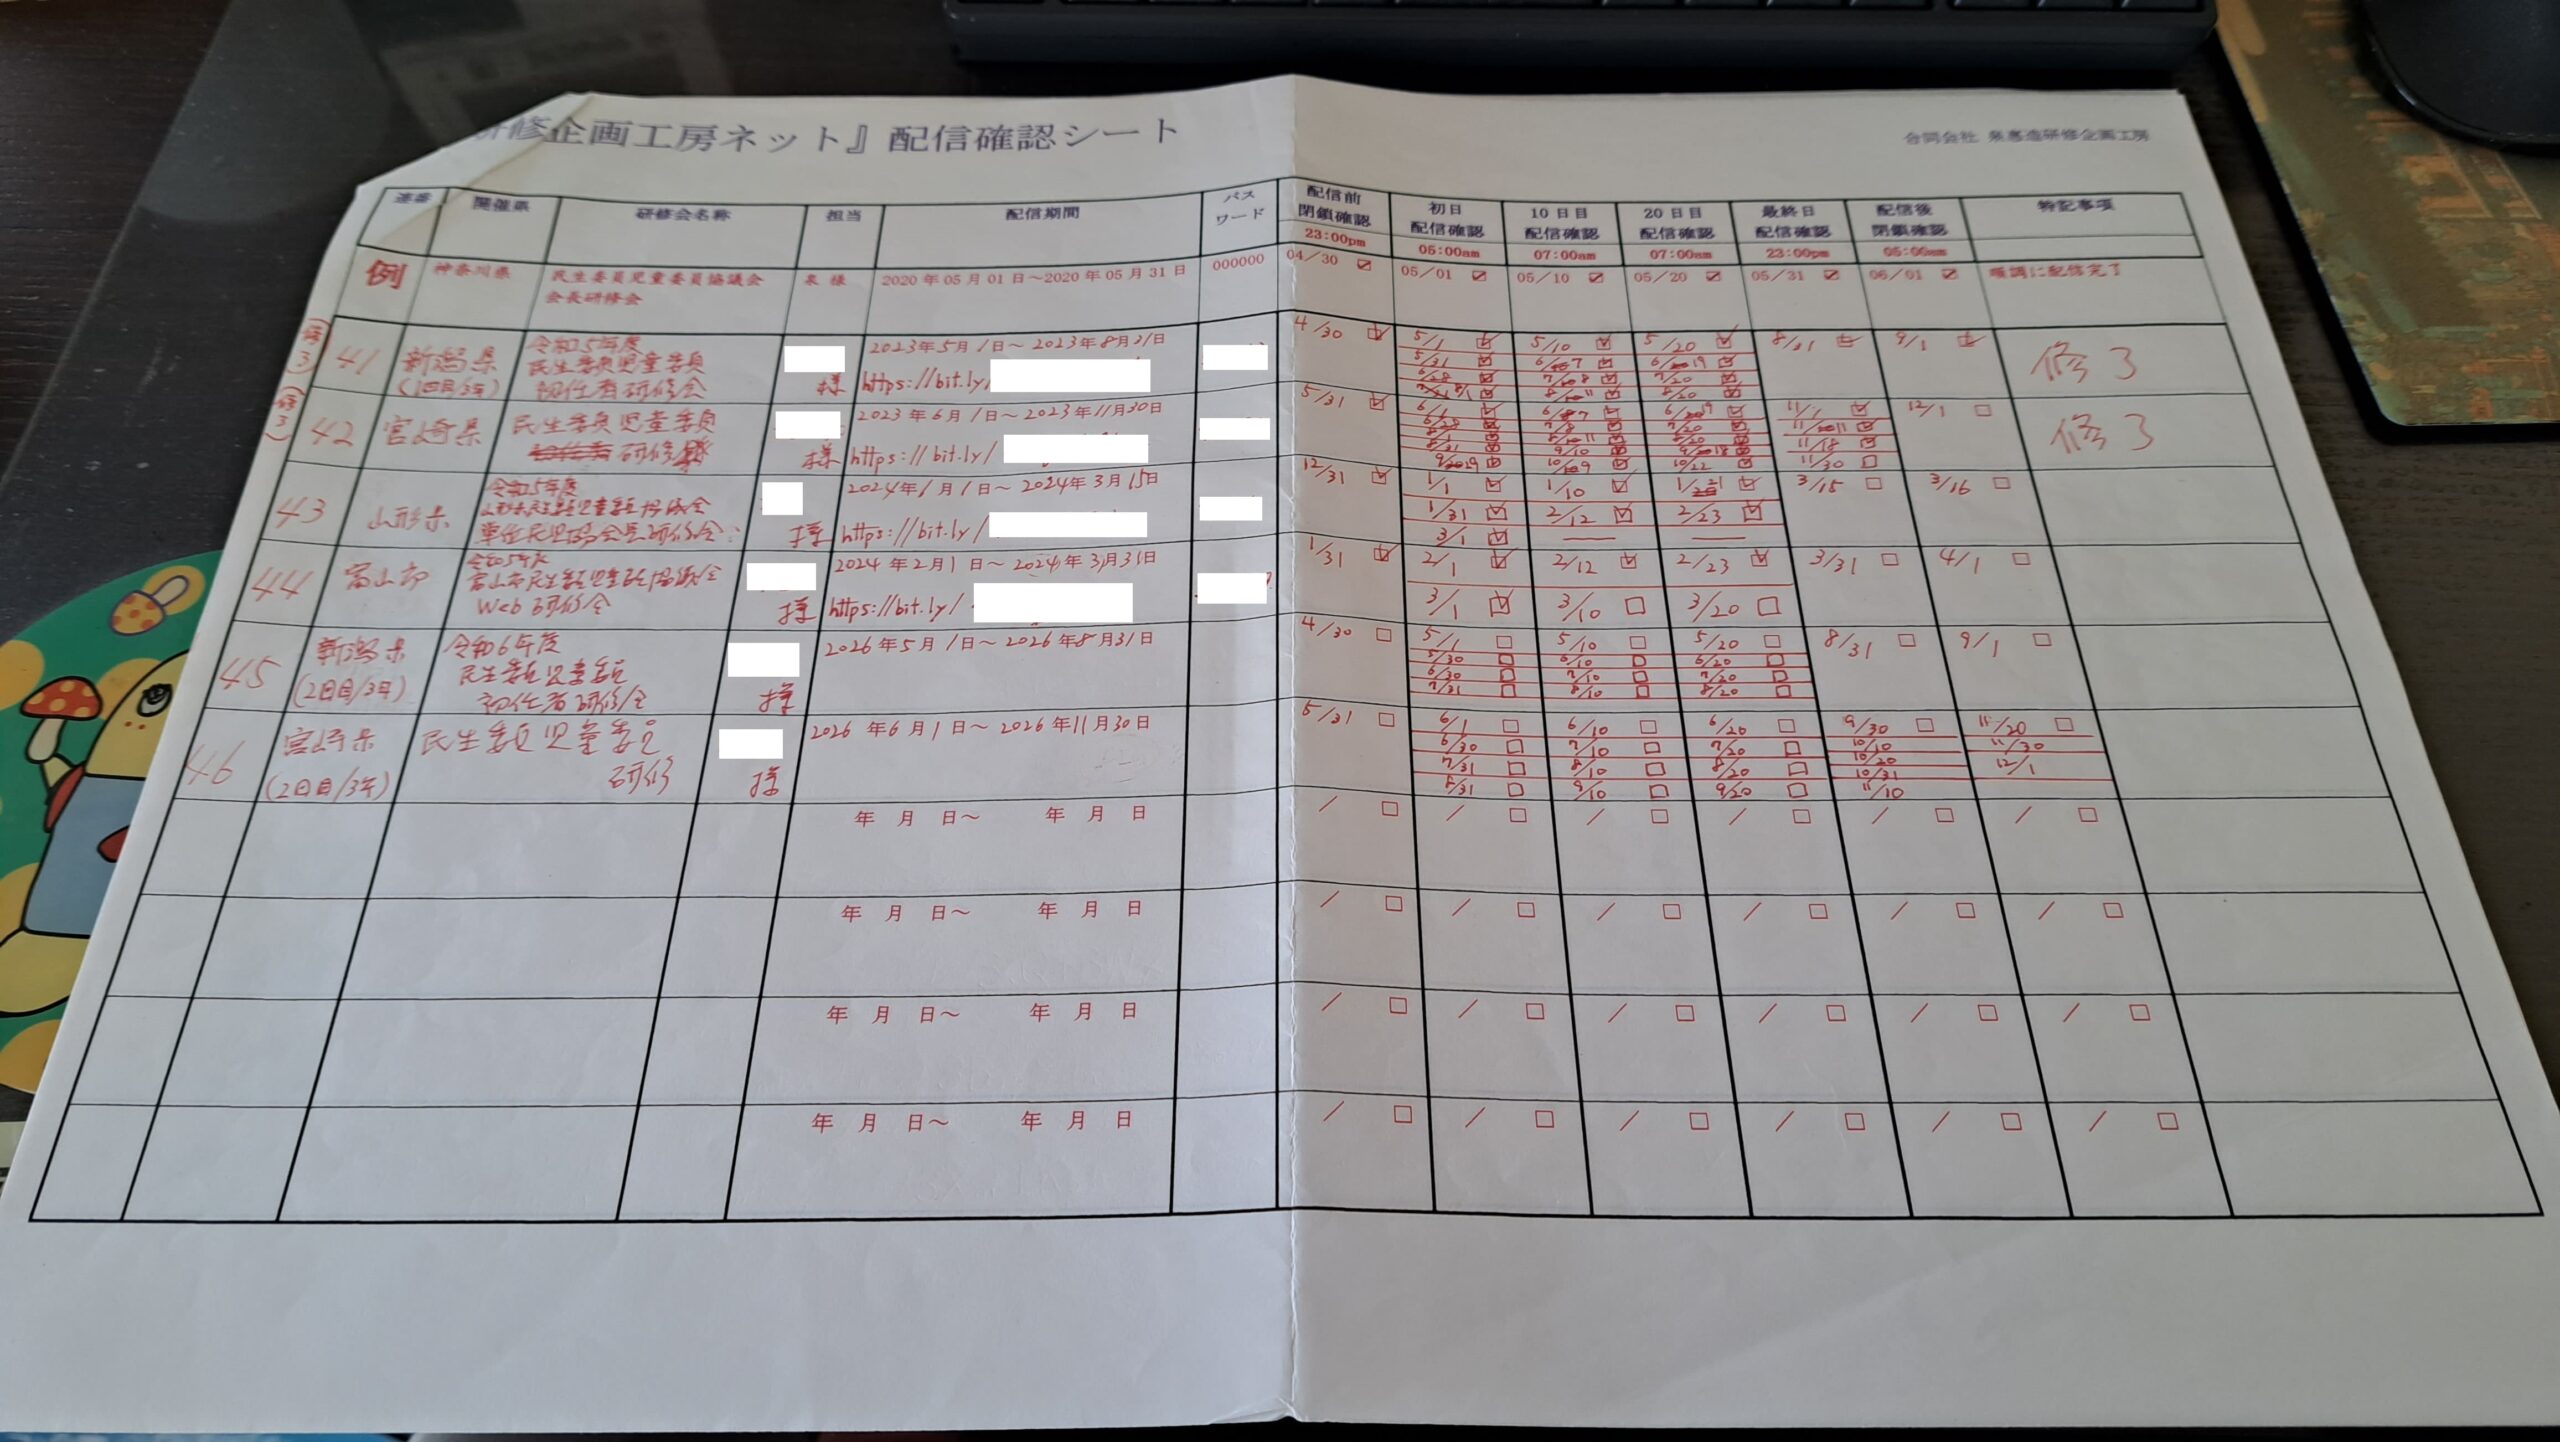 研修企画工房ネット』配信確認シート
合同会社 泉惠造研修企画工房
連番 開催県 研修会名称 担当 配信期間 パスワード 配信前閉鎖確認 初日配信確認 10日目配信確認 20日目配信確認 最終日配信確認 配信後閉鎖確認 特記事項
23:00pm 05:00am 07:00am 07:00am 23:00pm 05:00am
例 神奈川県 民生委員児童委員協議会 泉 様 2020年05月01日～2020年05月31日 000000 04/30 ☑ 05/01 ☑ 05/10 ☑ 05/20 ☑ 05/31 ☑ 06/01 ☑ 順調に配信完了
会長研修会
(修了) 41 新潟県 令和5年度 2023年5月1日～2023年8月31日 4/30 5/1 5/10 5/20 8/31 9/1 修了
(1回目/3年) 民生委員児童委員 様 https://bit.ly/ 5/31
初任者研修会
(修了) 42 宮崎県 民生委員児童委員 2023年6月1日～2023年11月30日 5/31 6/1 11/1 12/1 修了
研修 様 https://bit.ly/ 11/18
11/30
43 山形県 令和5年度 2024年1月1日～2024年3月15日 12/31 1/1 1/10 3/15 3/16
山形県民生委員児童委員協議会 1/31 2/12 2/23
単位民児協会長研修会 様 https://bit.ly/ 3/1
44 富山市 令和5年度 2024年2月1日～2024年3月31日 1/31 2/1 2/12 2/23 3/31 4/1
富山市民生委員児童委員協議会
Web研修会 様 https://bit.ly/ 3/1 3/10 3/20
45 新潟県 令和6年度 2026年5月1日～2026年8月31日 4/30 5/1 5/10 5/20 8/31 9/1
(2日目/3年) 民生委員児童委員 5/30 6/10 6/20
初任者研修会 様 6/30 7/10 7/20
7/31 8/10 8/20
46 宮崎県 民生委員児童委員 2026年6月1日～2026年11月30日 5/31 6/1 6/10 6/20 9/30 11/20
(2日目/3年) 研修 様 6/30 7/10 7/20 10/10 11/30
7/31 8/10 8/20 10/20 12/1
8/31 9/10 9/20 10/31
11/10
年 月 日～ 年 月 日 / □ / □ / □ / □ / □ / □
年 月 日～ 年 月 日 / □ / □ / □ / □ / □ / □
年 月 日～ 年 月 日 / □ / □ / □ / □ / □ / □
年 月 日～ 年 月 日 / □ / □ / □ / □ / □ / □